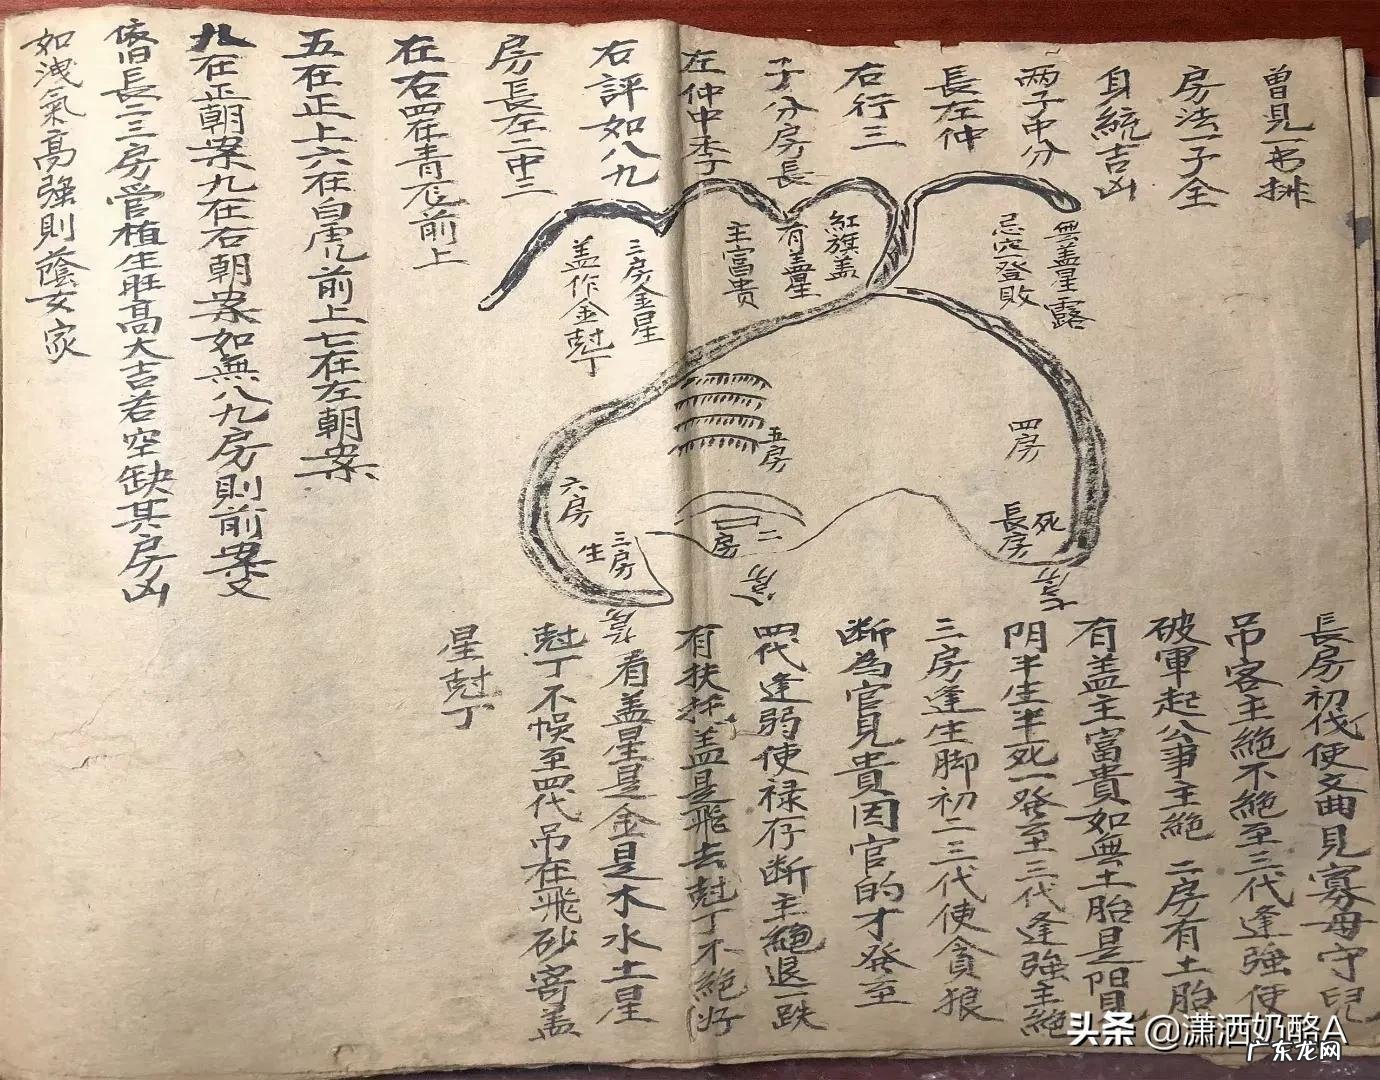 曾見一书排
房法一子全
身統吉凶
两子中分
長左仲
右行三
子分房長
左仲中季丁
右評如八九
房長左二中三
在右四在青龙前上
五在正上六在白虎前上七在左朝案
八在正朝案九在右朝案如無八九房則前案又
依旧長二三房管植生旺高大吉若空缺其房凶
如洩氣高強則蔭女家
無盖星露
忌空登敗
紅旗盖
有盖星
主富贵
三房金星
盖作金尅丁
四房
死
長房
七房
五房
二房
八房
六房
三房
生
九房
長房初伐使文曲見寡母守兒
吊客主絶不絶至三代逢強使
破軍起公事主絶 二房有土胎
有盖主富貴如無土胎是陽見
阴半生半死一發至三代逢強主絶
三房逢生脚初二三代使貪狼
断為官見貴因官的才發至
四代逢弱使禄存断主絶退一跌
有扶托盖是飛去尅丁不絶
看盖星是金是木水土星
尅丁不悞至四代吊在飛砂寄盖
星尅丁
头条 @潇洒奶酪A
广东龙网